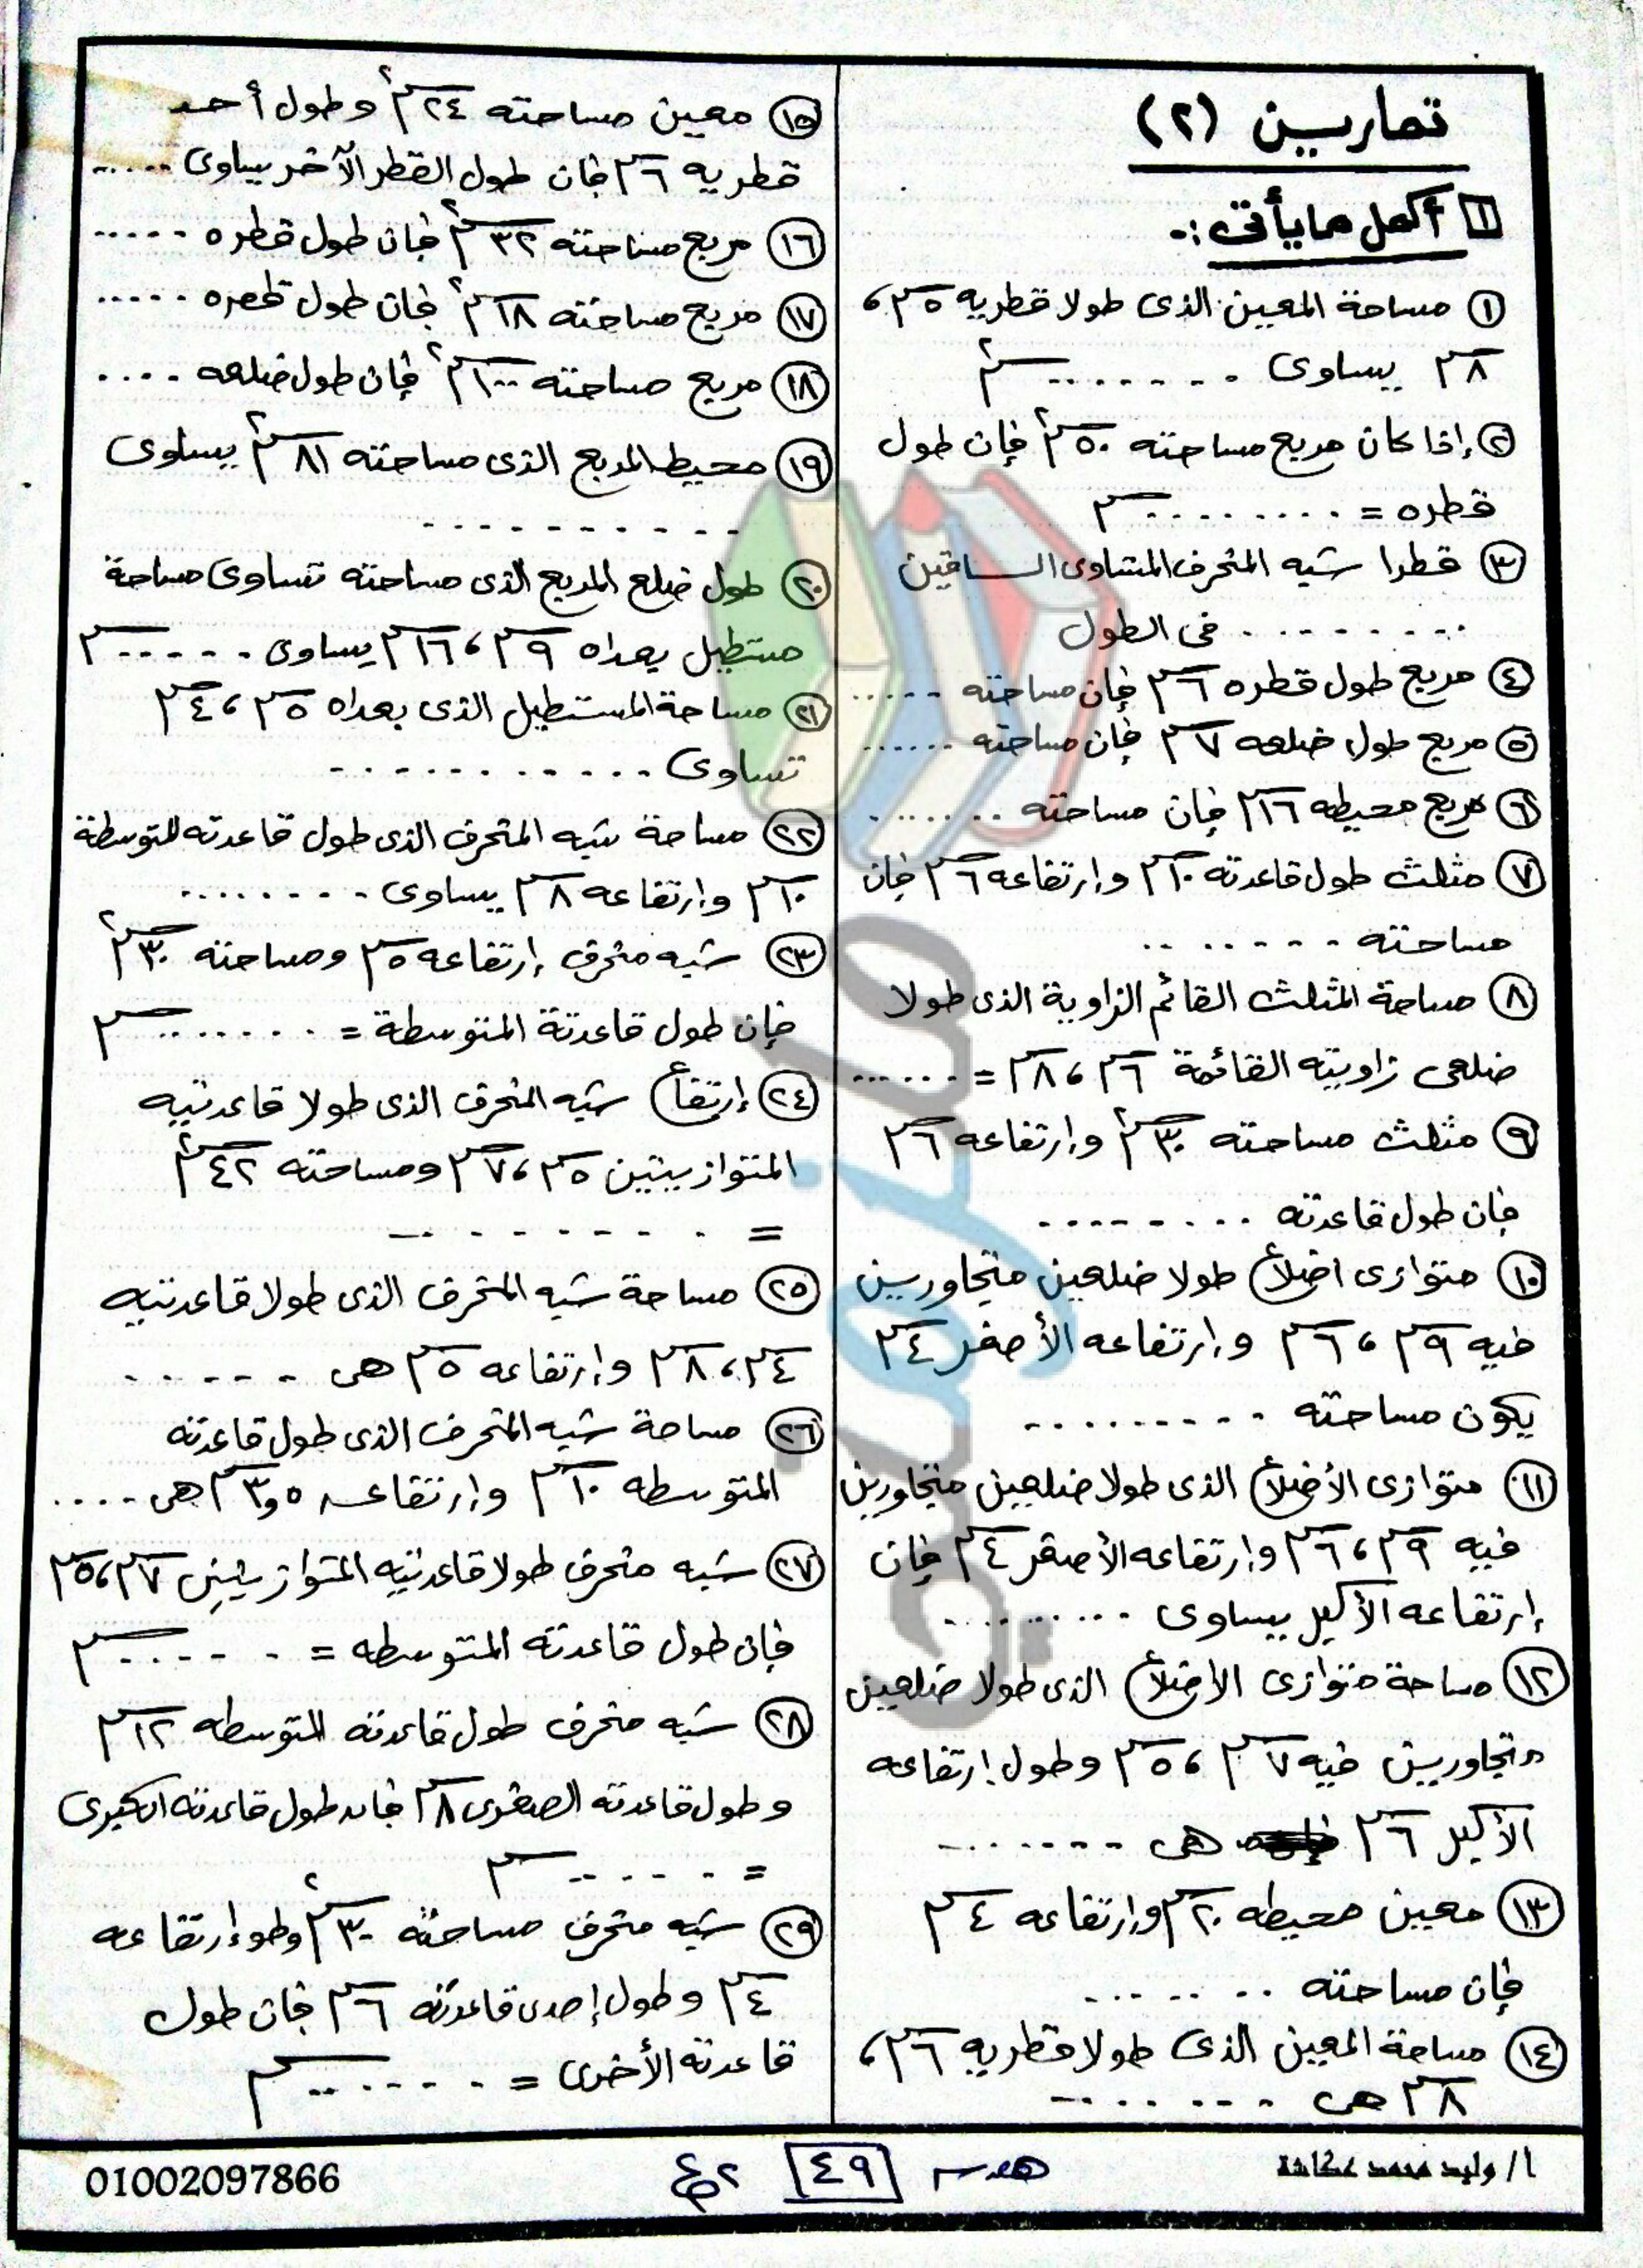 تمارين (٢)
١ أكمل ما يأتى :-
١ مساحة المعين الذى طولا قطريه ٥ سم ،
٨ سم يساوى ........ سم٢
٢ إذا كان مربع مساحته ٥٠ سم٢ فإن طول
قطره = ......... سم
٣ قطرا شبه المنحرف المتساوى الساقين
......... فى الطول
٤ مربع طول قطره ٦ سم فإن مساحته .....
٥ مربع طول ضلعه ٧ سم فإن مساحته ......
٦ مربع محيطه ١٦ سم فإن مساحته .......
٧ مثلث طول قاعدته ١٠ سم وإرتفاعه ٦ سم فإن
مساحته ........
٨ مساحة المثلث القائم الزاوية الذى طولا
ضلعى زاويته القائمة ٦ سم ، ٨ سم = ......
٩ مثلث مساحته ٣٠ سم٢ وإرتفاعه ٦ سم
فإن طول قاعدته .........
١٠ متوازى اضلاع طولا ضلعين متجاورين
فيه ٩ سم ، ٦ سم وإرتفاعه الأصغر ٤ سم
يكون مساحته .........
١١ متوازى الأضلاع الذى طولا ضلعين متجاورين
فيه ٩ سم ، ٦ سم وإرتفاعه الأصغر ٤ سم فإن
إرتفاعه الأكبر يساوى .........
١٢ مساحة متوازى الاضلاع الذى طولا ضلعين
متجاورين فيه ٧ سم ، ٥ سم وطول إرتفاعه
الأكبر ٦ سم هى .......
١٣ معين محيطه ٢٠ سم وإرتفاعه ٤ سم
فإن مساحته .......
١٤ مساحة المعين الذى طولا قطريه ٦ سم ،
٨ سم هى ........
١٥ معين مساحته ٢٤ سم٢ وطول أحد
قطريه ٦ سم فإن طول القطر الآخر يساوى .....
١٦ مربع مساحته ٣٢ سم٢ فإن طول قطره .....
١٧ مربع مساحته ١٨ سم٢ فإن طول قطره .....
١٨ مربع مساحته ١٠٠ سم٢ فإن طول ضلعه ....
١٩ محيط المربع الذى مساحته ٨١ سم٢ يساوى
..........
٢٠ طول ضلع المربع الذى مساحته تساوى مساحة
مستطيل بعداه ٩ سم ، ١٦ سم يساوى ...... سم
٢١ مساحة المستطيل الذى بعداه ٥ سم ، ٤ سم
تساوى ...........
٢٢ مساحة شبه المنحرف الذى طول قاعدته المتوسطة
١٠ سم وإرتفاعه ٨ سم يساوى ........
٢٣ شبه منحرف إرتفاعه ٥ سم ومساحته ٣٠ سم٢
فإن طول قاعدتة المتوسطة = ........ سم
٢٤ إرتفاع شبه المنحرف الذى طولا قاعدتيه
المتوازيتين ٥ سم ، ٧ سم ومساحته ٤٢ سم٢
= .........
٢٥ مساحة شبه المنحرف الذى طولا قاعدتيه
٤ سم ، ٨ سم وإرتفاعه ٥ سم هى ......
٢٦ مساحة شبه المنحرف الذى طول قاعدته
المتوسطه ١٠ سم وإرتفاعه ٣,٥ سم هى ....
٢٧ شبه منحرف طولا قاعدتيه المتوازيتين ٧ سم ، ٥ سم
فإن طول قاعدته المتوسطه = ...... سم
٢٨ شبه منحرف طول قاعدته المتوسطه ١٢ سم
وطول قاعدته الصغرى ٨ سم فان طول قاعدته الكبرى
= ...... سم
٢٩ شبه منحرف مساحته ٣٠ سم٢ وطو إرتفاعه
٤ سم وطول إحدى قاعدته ٦ سم فان طول
قاعدته الأخرى = ....... سم
أ/ وليد محمد عكاشة
هندسه ٤٩ ٢ع
01002097866